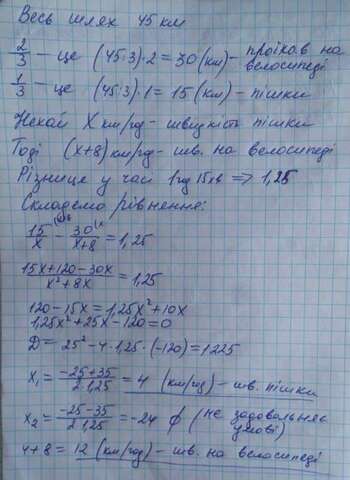 Весь шлях 45 км
2/3 — це (45:3)·2 = 30 (км) – проїхав на велосипеді
1/3 — це (45:3)·1 = 15 (км) – пішки
Нехай X км/год – швидкість пішки
Тоді (x+8) км/год – шв. на велосипеді
Різниця у часі 1 год 15 хв ⇒ 1,25
Складемо рівнення:
15/x - 30/x+8 = 1,25
15x+120-30x/x²+8x = 1,25
120-15x = 1,25x²+10x
1,25x²+25x-120=0
D = 25²-4·1,25·(-120)=1225
x₁ = -25+35/2·1,25 = 4 (км/год) – шв. пішки
x₂ = -25-35/2·1,25 = -24 ∅ (не задовольняє умові)
4+8 = 12 (км/год) – шв. на велосипеді